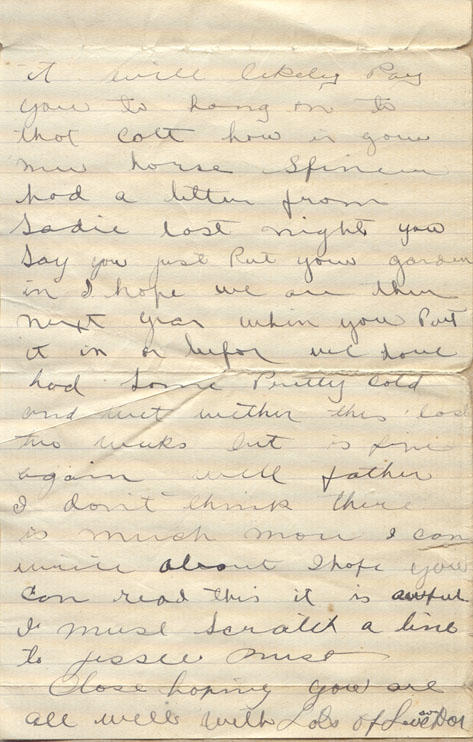 it will likely Pay
you to hang on to
that Colt how is your
new horse
had a letter from
Sadie last night you
Say you just Put your garden
in I hope we are then
next year when you Put
it in or befor we have
had Some Pretty Cold
and wet wether this last
two weeks but is fine
again well father
I don't think there
is much more I can
write about I hope you
Can read this it is awful
I must Scratch a line
to Jessie must
Close hoping you are
all well with Lots of Love